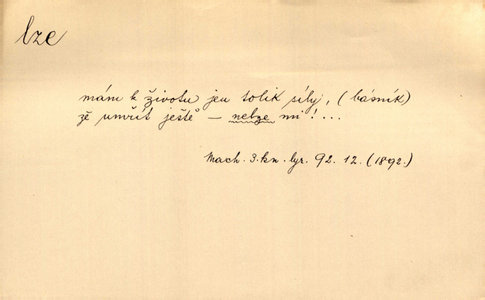 lze
mám k životu jen tolik síly, (básník)
zě umřít ještě – nelze mi!...
Mach. 3. kn. lyr. 92. 12. (1892.)